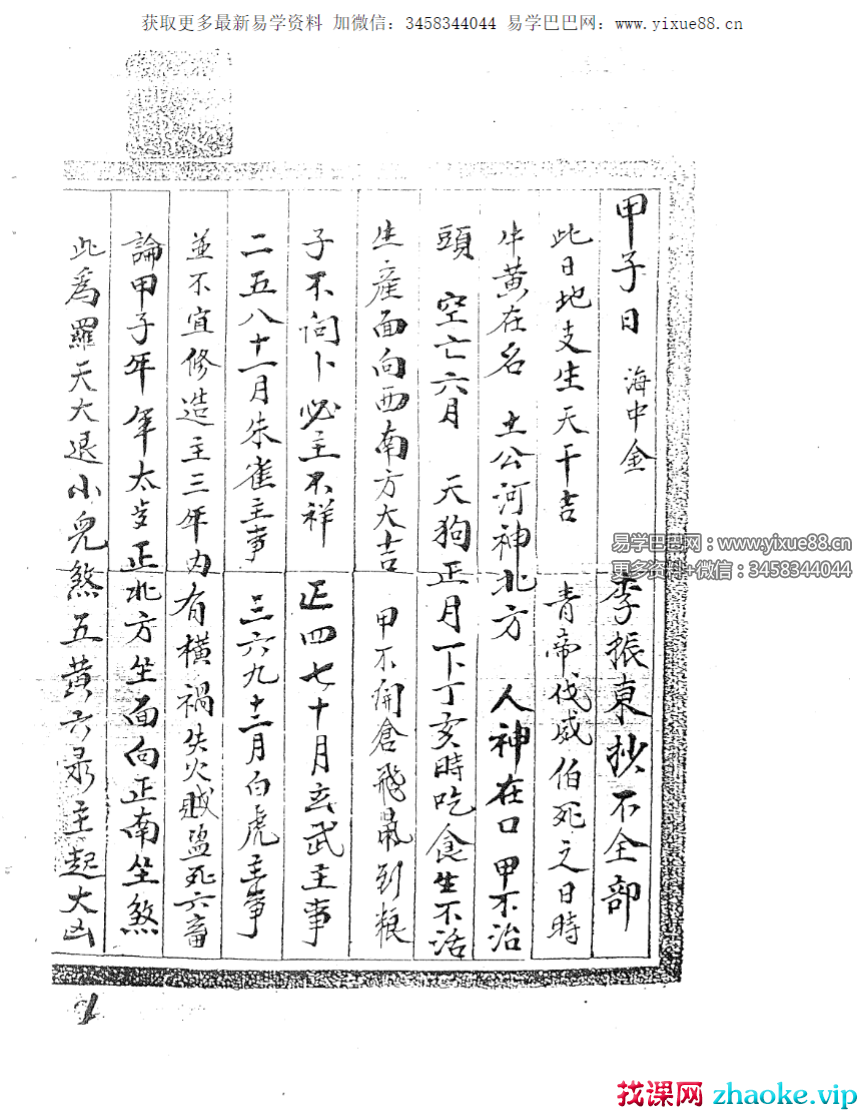 获取更多最新易学资料 加微信：3458344044 易学巴巴网：www.yixue88.cn
甲子日 海中金 李振東抄不全部
此日地支生天干吉 青帝伐威伯死之日時
牛黄在名 土公河神北方 人神在口 甲不治
頭 空亡六月 天狗正月下丁亥時吃食生不活
生產面向西南方大吉 甲不開倉飛鼠到粮
子不问卜必主不祥 正四七十月玄武主事
二五八十一月朱雀主事 三六九十二月白虎主事
並不宜修造主三年内有橫禍失火贼盜死六畜
論甲子年年太岁正北方坐面向正南坐煞
此為羅天大退小兒煞五黄六录主起大凶
易学巴巴网：www.yixue88.cn
更多资料+微信：3458344044
1
找课网 zhaoke.vip